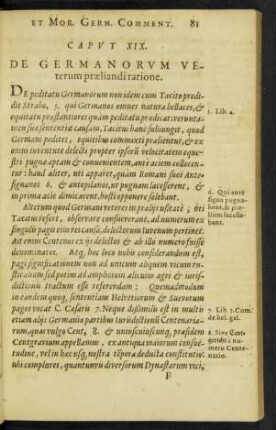 ET MOR. GERM. COMMENT. 81
CAPVT XIX.
DE GERMANORVM VE-
terum præliandi ratione.
DE peditatu Germanorum non idem cum Tacito prodi-
dit Strabo, 5. qui Germanos omnes natura bellaces, &
equitatu præstantiores quàm peditatu prædicat: verunta-
men suæ sententiæ causam, Tacitus hanc subiungit, quod
Germani pedites, equitibus commixti prælientur, & ex
omni iuventute delecti propter ipsorū velocitatem eque-
stri pugnæ aptam & convenientem, ante aciem collocen-
tur: haud aliter, uti apparet, quàm Romani suos Ante-
signanos 6. & antepilanos, ut pugnam lacesserent, &
in prima acie dimicarent, hosti opponere solebant.
Alterum quod Germani veteres in præliis usitatè, uti
Tacitus refert, observare consueverant, ad numerum ex
singulis pagis eius rei causâ, delectorum iuvenum pertinet:
Aut enim Centenos ex iis delectos & ab illo numero fuisse
denominatos. Atq, hoc loco nobis considerandum est,
pagi significationem non ad unicum aliquem vicum ru-
sticationis sed potius ad amphorem alicuius agri & iuris-
dictionis tractum esse referendam: Quemadmodum
in eandem quoq, sententiam Helvetiorum & Suevorum
pagos vocat C. Cæsaris 7. Neque dissimile est in multis
etiam aliis Germaniæ partibus iurisdictionū Centenaria-
rum, quas vulgo Cent, 8. & uniuscuiusq, præsidem
Centgravium appellamus, ex antiqua maiorum consue-
tudine, vel in hec usq, nostra tēpora deducta constitutio-
nib. complures, quantumvis diversorum Dynastarum vici,
F
5. Lib 4.
6. Qui ante
signa pugna-
bant, & præ-
lium lacesse-
bant.
7. Lib 1. Com.
de bel. gal.
8. Sive Cent-
gericht à nu-
mero Cente-
nario.